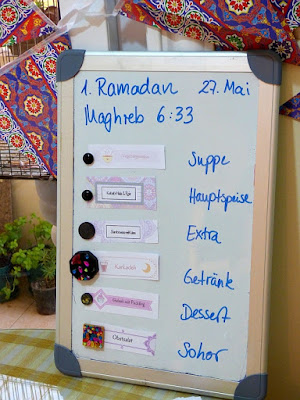 1. Ramadan 27. Mai
Maghreb 6:33
Suppe
Hauptspeise
Extra
Getränk
Dessert
Obstsalat
Sohor